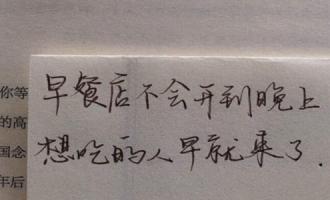 你等
早餐店不会开到晚上
的高
想吃的人早就来了.
国念
年后